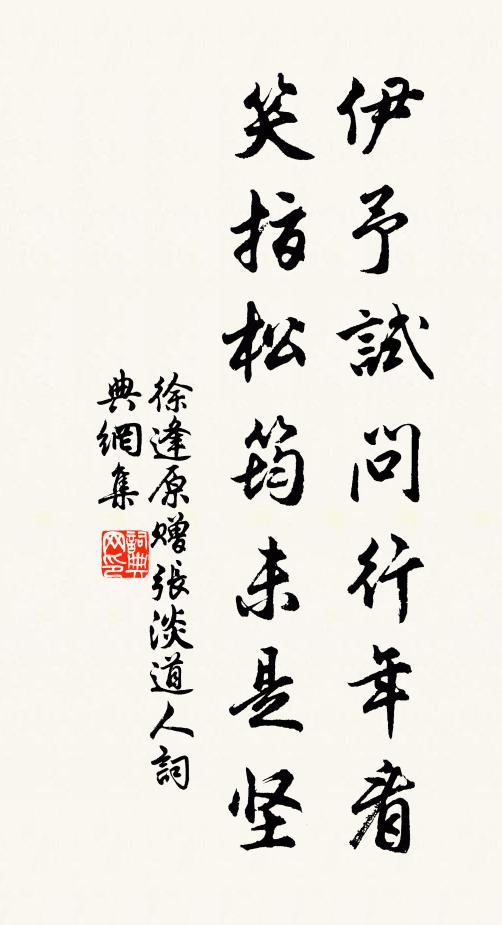 伊予試問行年者
笑指松筠未是坚
徐逢原赠張淡道人詞
典網集
詞典网印